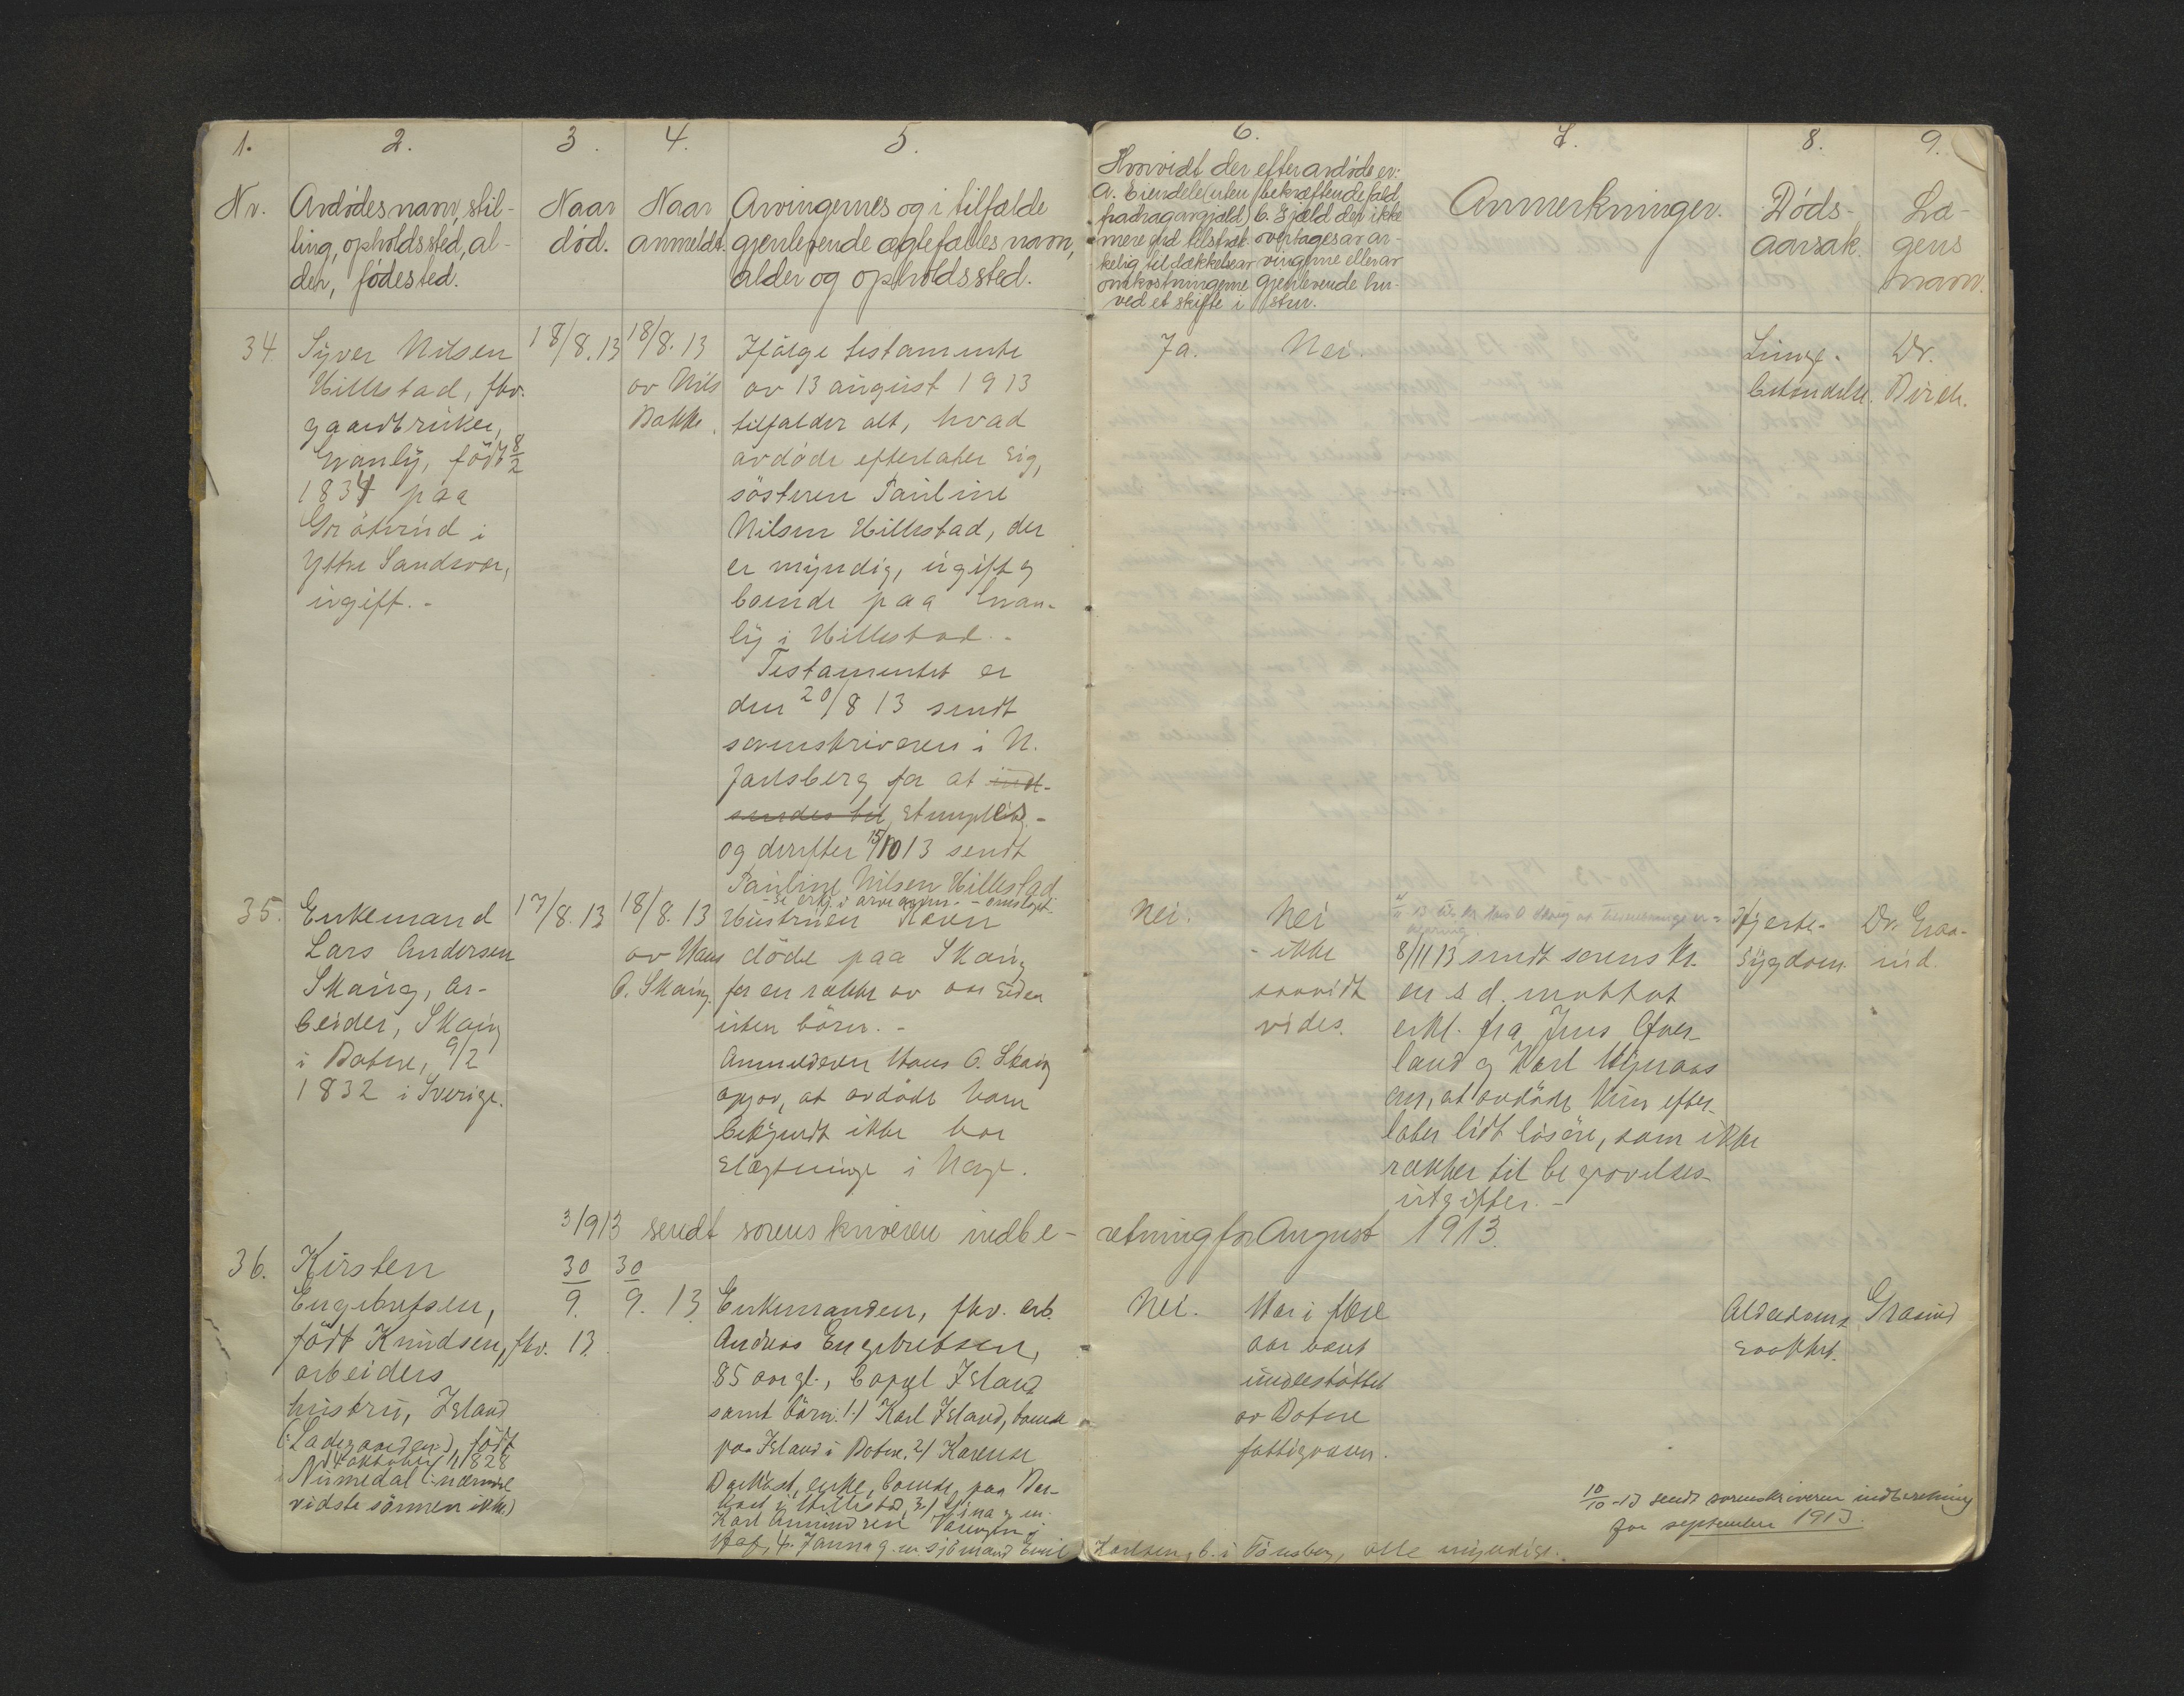 1.
2.
3.
4.
5.
6.
7.
8.
9.
Nr.
Avdødes navn, stil-
ling, opholdssted, al-
der, fødested.
Naar
død.
Naar
anmeldt.
Arvingernes og i tilfælde
gjenlevende ægtefælles navn,
alder og opholdssted.
Hvorvidt der efter avdøde er:
a. Eiendele (uten
fradrag av gjæld)
mere end tilstræk-
kelig til dækkelse av
omkostningerne
ved et skifte i
bekræftende fald
b. Gjæld der ikke
overtages av ar-
vingerne eller av
gjenlevende hu-
stru.
Anmerkninger.
Døds-
aarsak.
Læ-
gens
navn.
34
Syver Nilsen
Hillestad, fhv.
gaardbruker,
Granly, født 8/2
1834 paa
i
Ytre Sandsvær,
ugift. -
18/8. 13
18/8. 13
av Nils
Bakke.
Ifølge testamente
av 13 august 1913
tilfalder alt, hvad
avdøde efterlater sig,
søsteren Pauline
Nilsen Hillestad, der
er myndig, ugift og
boende paa Gran-
ly i Hillestad. -
Testamentet er
den 20/8 13 sendt
sorenskriveren i N.
Jarlsberg for at ind-
sendes til stemples -
og derefter 15/10 13 sendt
Pauline Nilsen Hillestad
Ja.
Nei.
Lunge-
betændelse.
Dr.
35.
Enkemand
Lars Andersen
Skaug, ar-
beider, Skaug
i Botne, 9/2
1832 i Sverige.
17/8. 13
18/8. 13
av Hans
O. Skaug.
Hustruen Karen
døde paa Skaug
for en række av aar siden
uten børn. -
Anmelderen Hans O. Skaug
opgav, at avdøde ham
bekjendt ikke har
slægtninge i Norge.
Nei.
Nei
- ikke
saavidt
vides.
8/11 13 sendt sorenskr.
en s. d. mottat
erkl. fra Jens
land og Karl
om, at avdøde kun efter-
later lidt løsøre, som ikke
rækker til begravelses-
utgifter. -
Hjerte-
sygdom.
Dr. Graa-
rud.
3/9 13 sendt sorenskriveren indbe-
retning for August 1913.
36.
Kirsten
Engebretsen,
født Knudsen, fhv.
arbeiders
hustru, Island
født
4 oktober 1828
i Numedal (: nærmere
vidste sønnen ikke)
30
9.
13.
30
9. 13.
Enkemanden, fhv. arb.
Andreas Engebretsen,
85 aar gl., bopæl Island
samt børn: 1/ Karl Island, boende
paa Island i Botne. 2/ Karense
enke, boende paa
i Hillestad, 3/ g. m.
Karl
4. g. m. sjømand Emil
Karlsen, b. i Tønsberg, alle myndige.
Nei.
Har i flere
aar været
understøttet
av Botne
fattigvæsen.
Alderdoms-
svakhet.
Graarud
10/10 -13 sendt sorenskriveren indberetning
for september 1913.